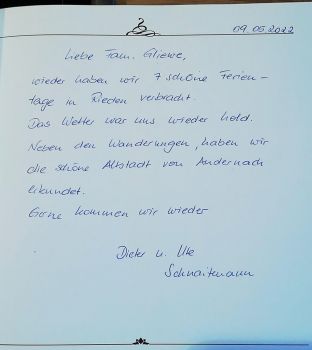 09.05.2022
Liebe Fam. Gliewe,
wieder haben wir 7 schöne Ferien-
tage in Rieden verbracht.
Das Wetter war uns wieder hold.
Neben den Wanderungen, haben wir
die schöne Altstadt von Andernach
erkundet.
Gerne kommen wir wieder
Dieter u. Ute
Schnaitmann